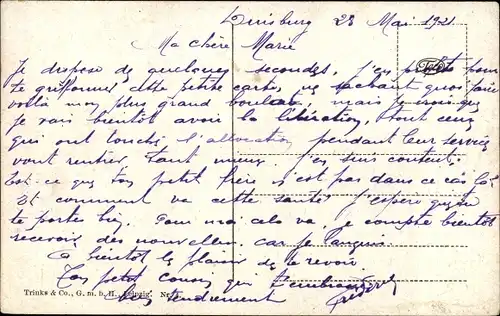 Duisburg 28 Mai 1921
Ma chère Marie
Je dispose de quelques secondes, j'en profite pour
te griffonner cette petite carte, ne sachant quoi faire
voilà mon plus grand boulot, mais je crois que
je vais bientôt avoir la libération, tout ceux
qui ont touché l'allocation pendant leur service
vont rentrer. Tant mieux j'en suis content.
Est-ce que ton petit frère n'est pas dans ce cas là?
Et comment va cette santé j'espère que tu
te portes bien. Pour moi cela va je compte bientôt
recevoir des nouvelles car je languis.
A bientôt le plaisir de te revoir
Ton petit cousin qui t'embrasse
bien tendrement
Trinks & Co., G. m. b. H., Leipzig.